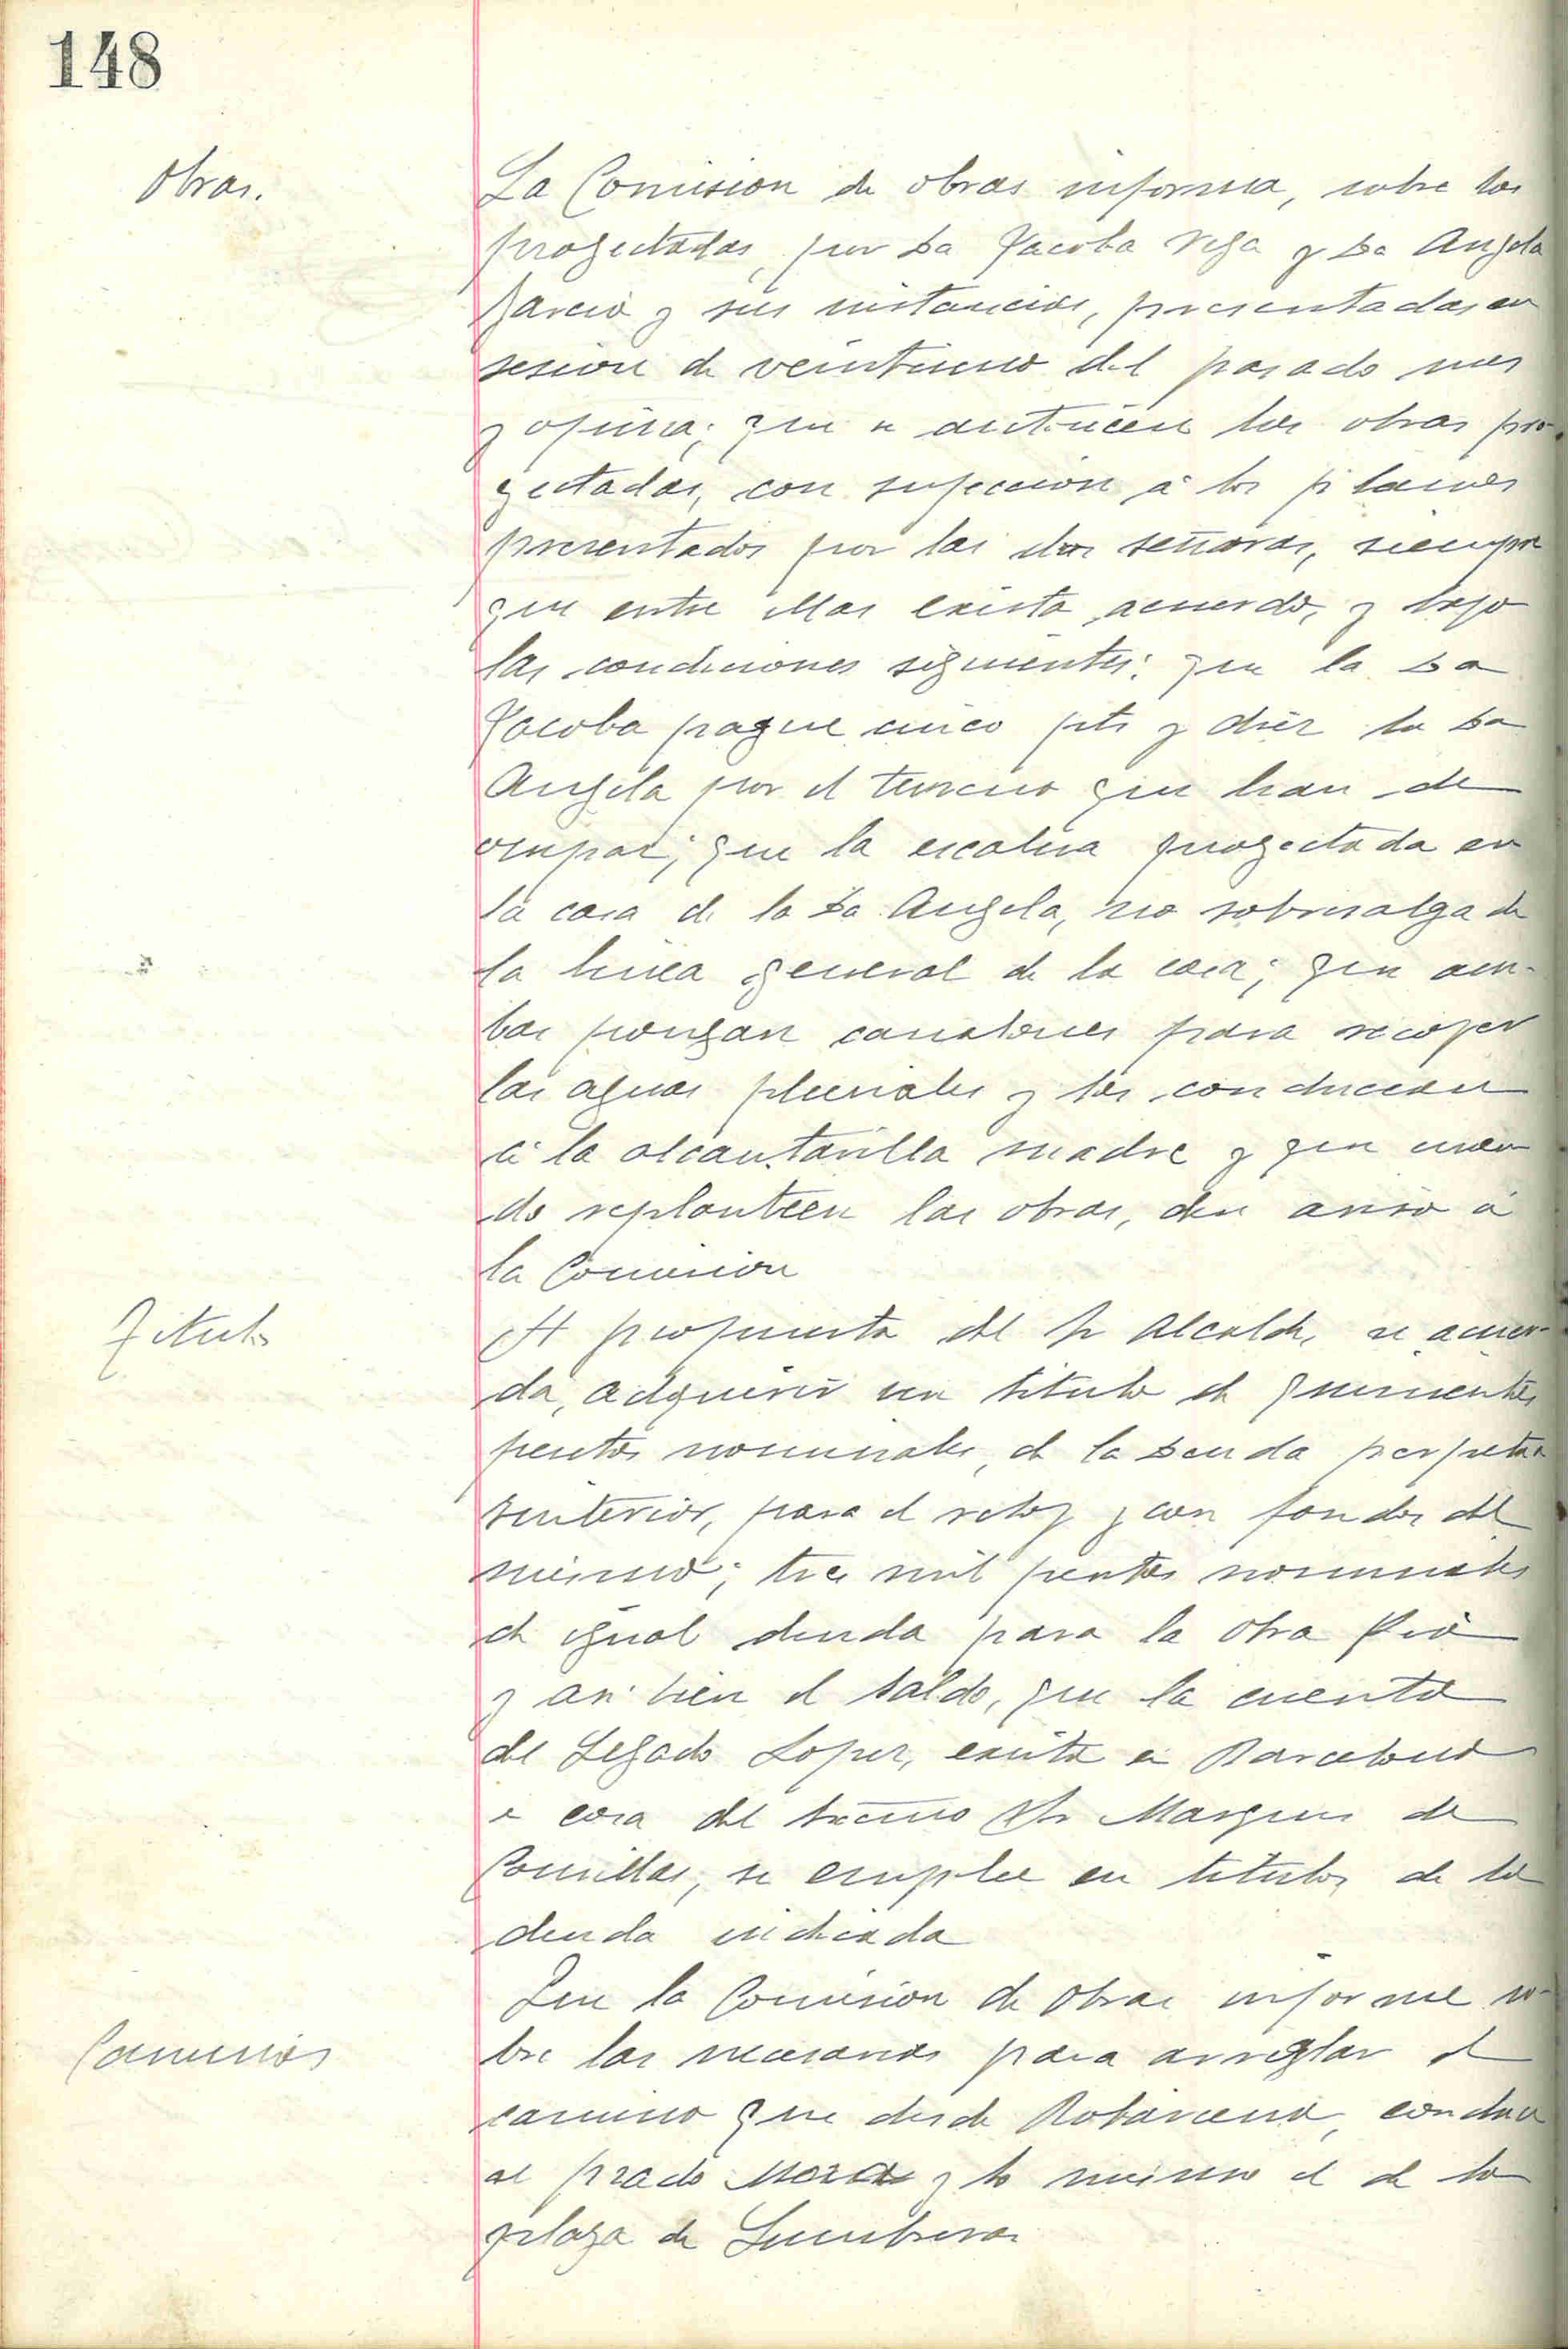 148
Obras.
La Comision de obras informa, sobre las
proyectadas, por Da Jacoba Vega y Da Angela
Garcia y sus instancias, presentadas en
sesion de veintiuno del pasado mes
y opina; que se autoricen las obras pro-
yectadas, con sujeccion á los planes
presentados por las dos señoras, siempre
que entre ellas exista acuerdo, y bajo
las condiciones siguientes: que la Da
Jacoba pague cinco pts y diez la Da
Angela por el terreno que han de
ocupar; que la escalera proyectada en
la casa de la Da Angela, no sobresalga de
la linea general de la casa; que am-
bas pongan canalones para recoger
las aguas pluviales y las conduzcan
á la alcantarilla madre y que cuan-
do replanteen las obras, den aviso á
la Comision
Titulos
A propuesta del Sr Alcalde, se acuer-
da, adquirir un titulo de quinientas
pesetas nominales, de la Deuda perpetua
Interior, para el reloj y con fondos del
mismo; tres mil pesetas nominales
de igual deuda para la Obra Pia
y asi bien el saldo, que la cuenta
del Legado Lopez, exista en Barcelona
en casa del Excmo Sr Marques de
Comillas, se emplee en titulos de la
deuda indicada
Caminos
Que la Comision de Obras informe so-
bre las necesarias para arreglar el
camino que desde Robarcena, conduce
al prado Mora y lo mismo el de la
plaza de Sumbreras